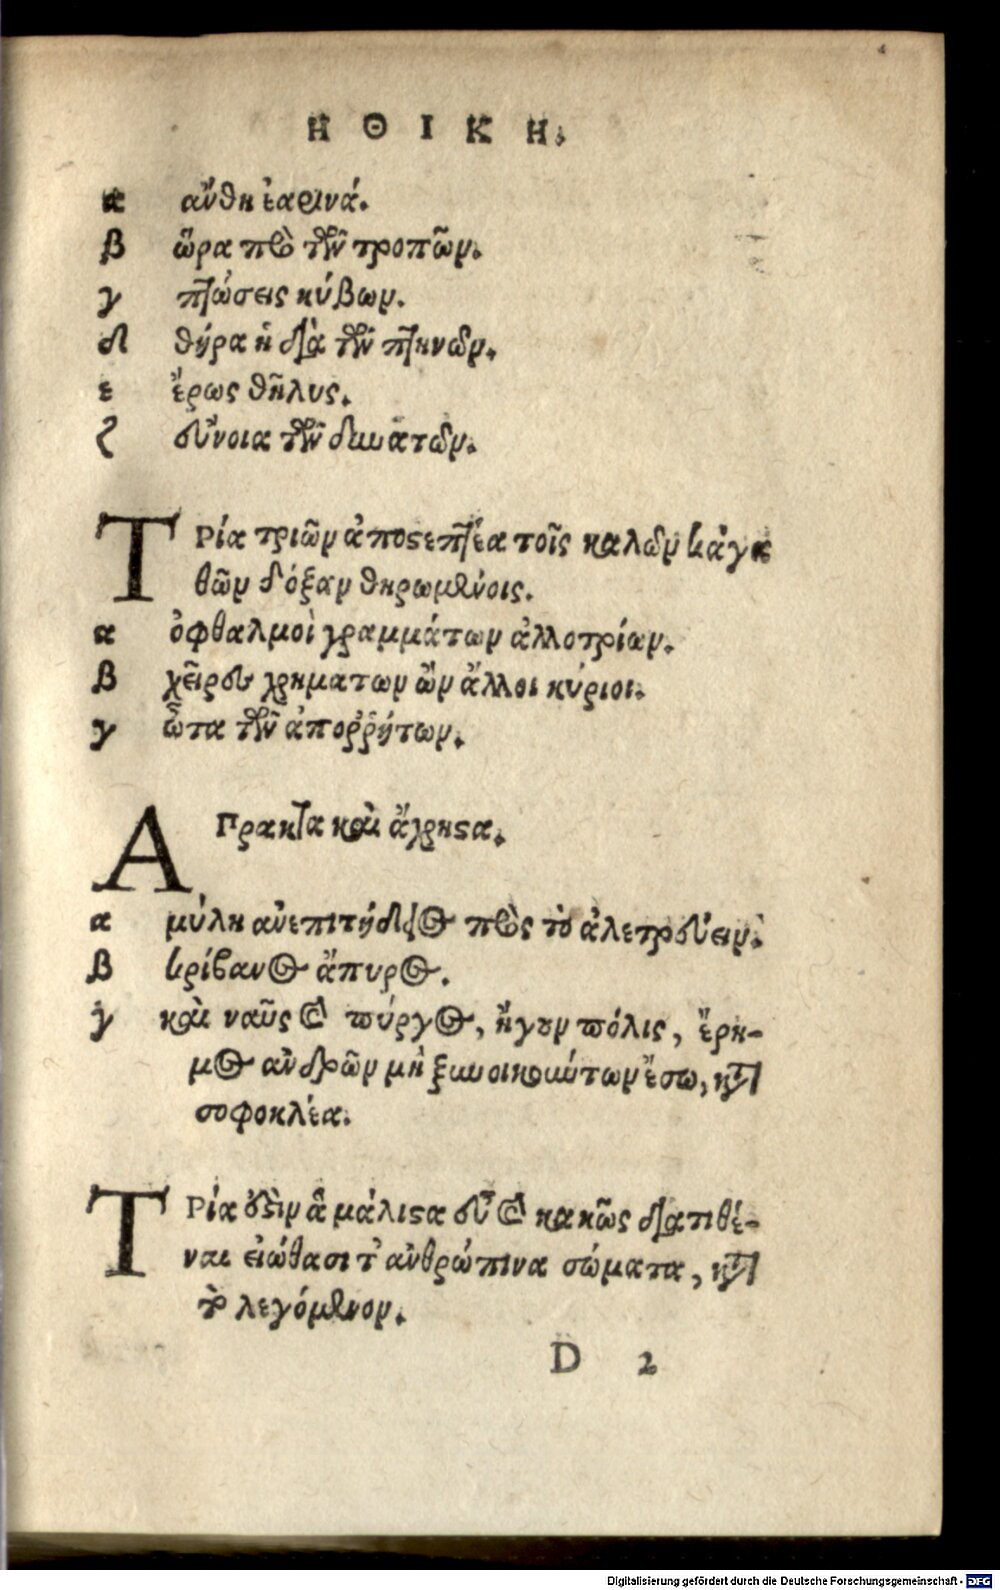 ΗΘΙΚΗ.
α ἄνθη ἐαρινά.
β ὥρα πρὸ τῶν τροπῶν.
γ πτώσεις κύβων.
δ θήρα ἡ διὰ τῶν πτηνῶν.
ε ἔρως θῆλυς.
ζ εὔνοια τῶν δυνατῶν.
ΤΡία τριῶν ἀποστεπτέα τοῖς καλῶν κἀγα
θῶν δόξαν θηρωμένοις.
α ὀφθαλμοὶ γραμμάτων ἀλλοτρίων.
β χεῖρες χρημάτων ὧν ἄλλοι κύριοι.
γ ὦτα τῶν ἀποῤῥήτων.
ΑΠρακτα καὶ ἄχρηστα.
α μύλη ἀνεπιτήδειος πρὸς τὸ ἀλετρεύειν.
β κρίβανος ἄπυρος.
γ καὶ ναῦς καὶ πύργος, ἤγουν πόλις, ἔρη-
μος ἀνδρῶν μὴ ξυνοικούντων ἔσω, κατὰ
σοφοκλέα.
ΤΡία ἐστὶν ἃ μάλιστα εὖ καὶ κακῶς διατιθέ-
ναι εἰώθασι τὰ ἀνθρώπινα σώματα, κατὰ
τὸ λεγόμενον.
D 2
Digitalisierung gefördert durch die Deutsche Forschungsgemeinschaft - DFG